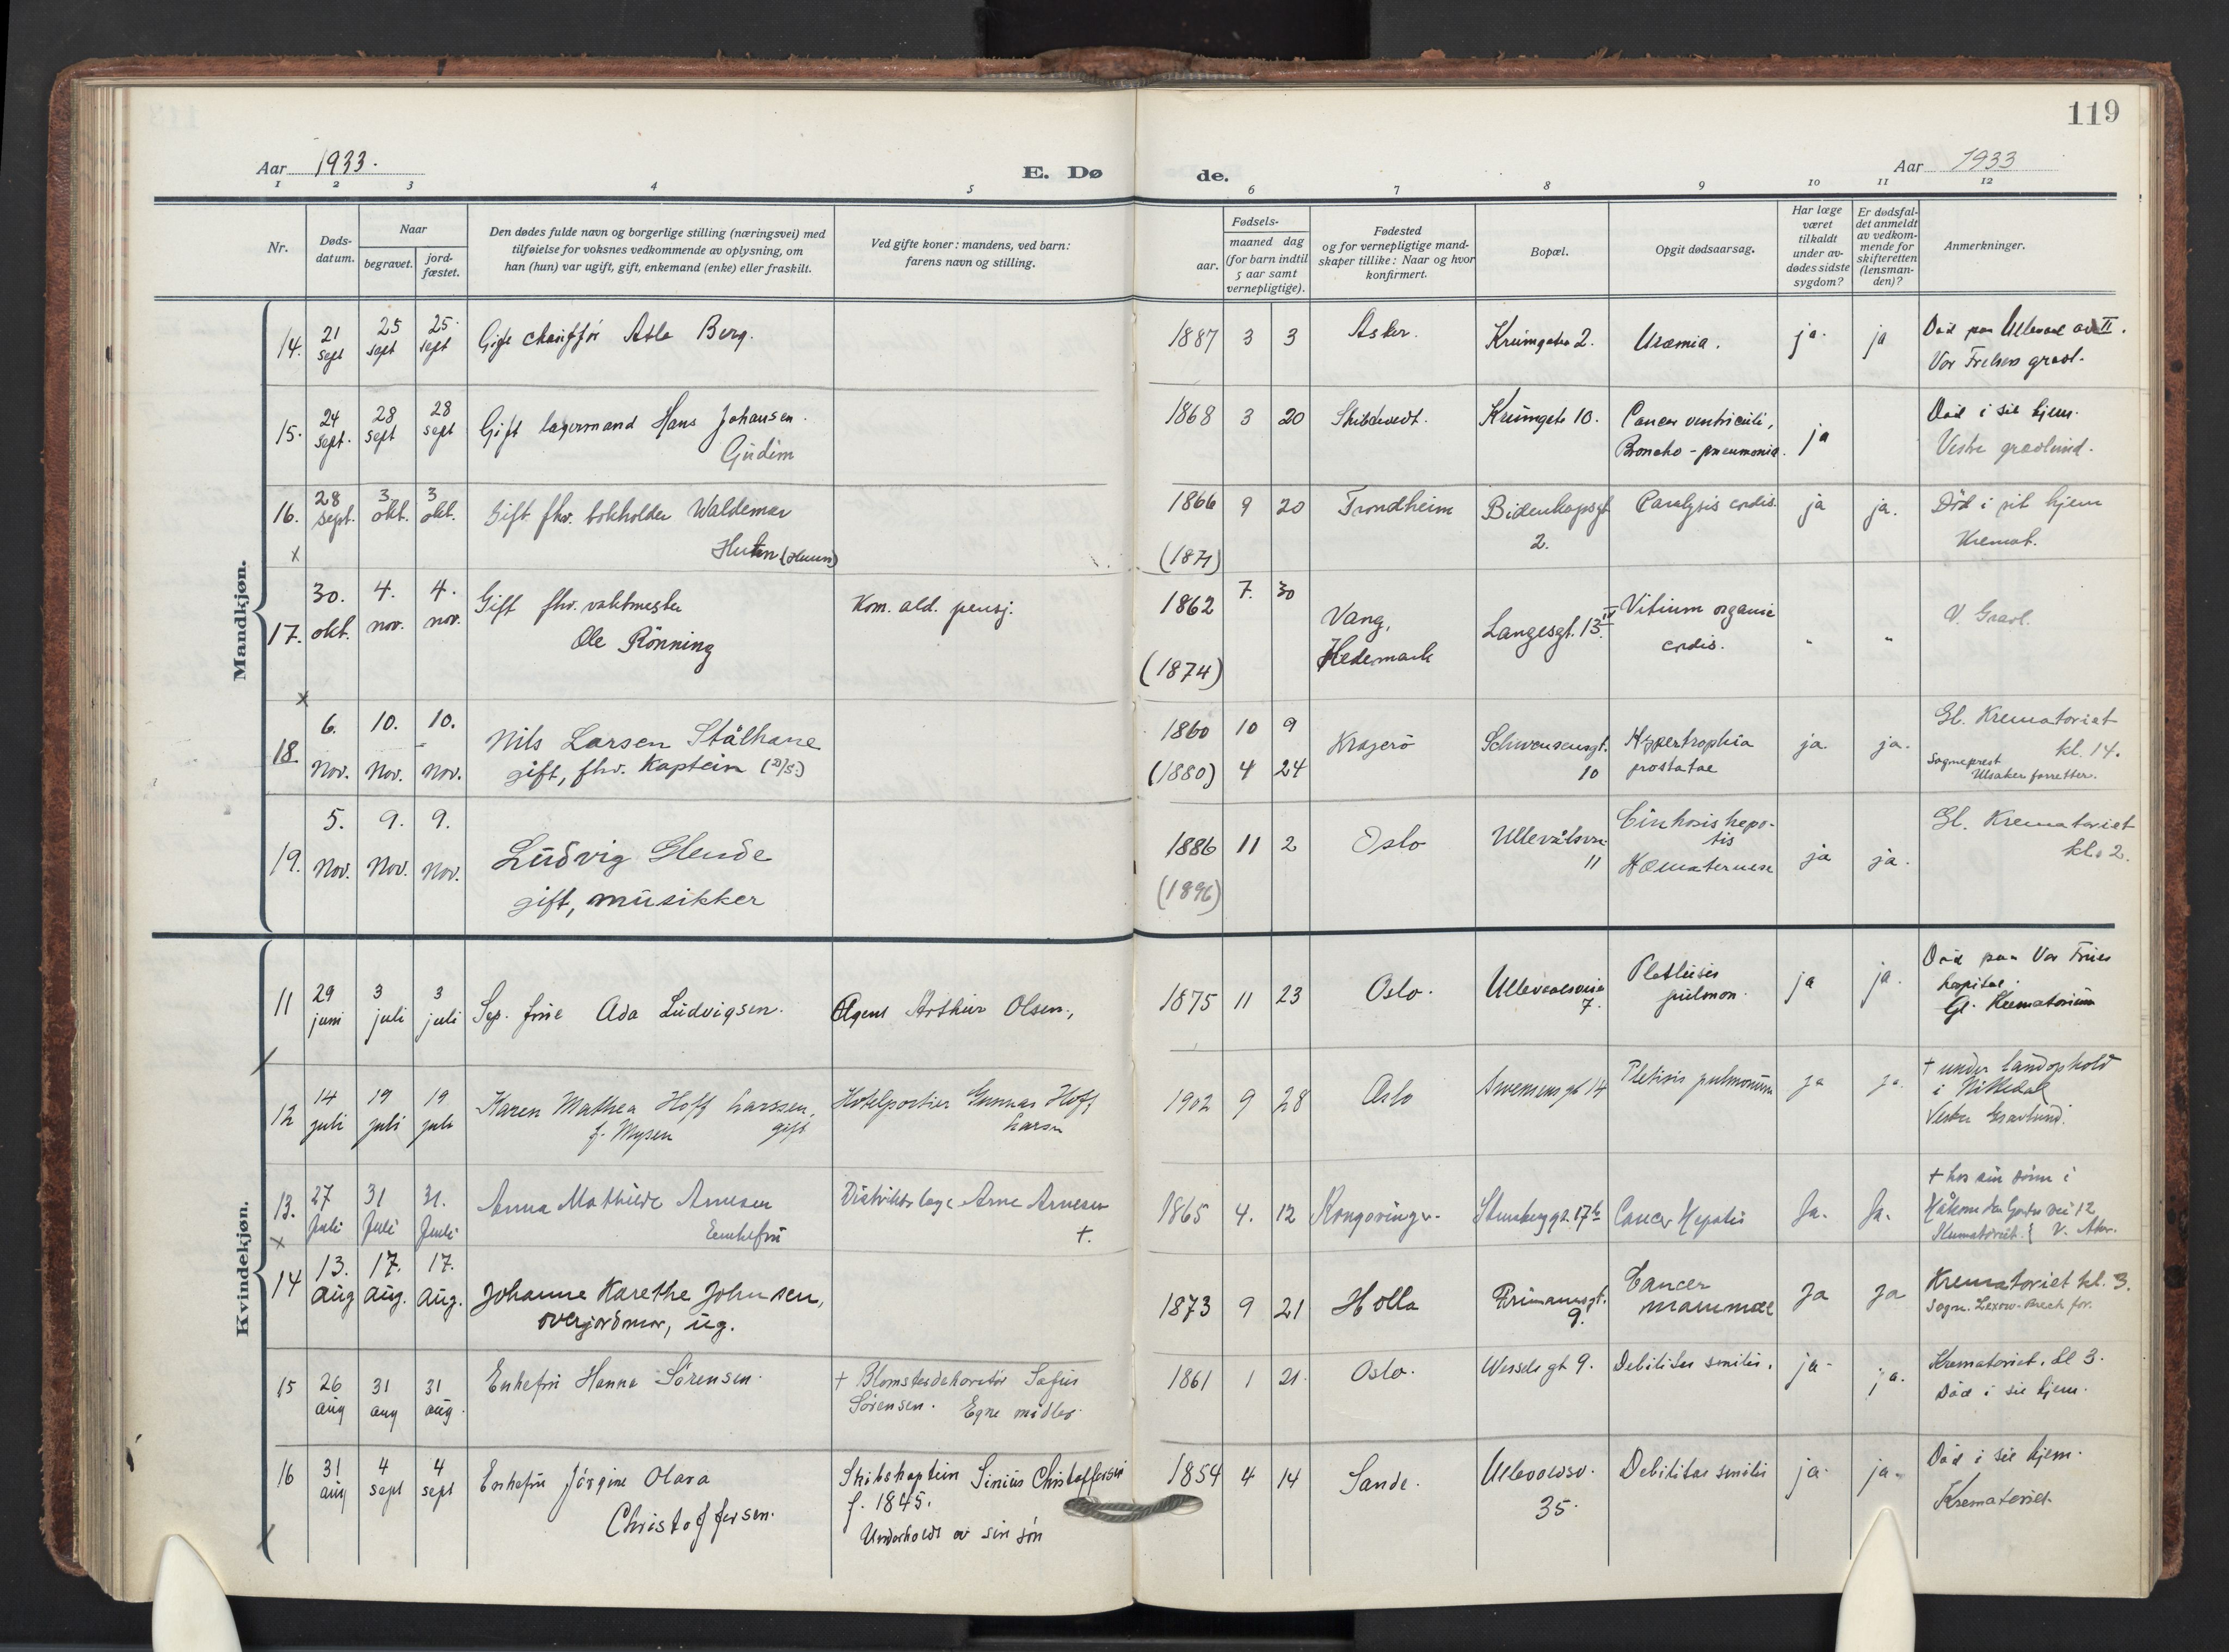 119
Aar 1933.
E. Dø
de.
Aar 1933
1 2 3 4 5 6 7 8 9 10 11 12
Nr.
Døds-
datum.
Naar
begravet.
jord-
fæstet.
Den dødes fulde navn og borgerlige stilling (næringsvei) med
tilføielse for voksnes vedkommende av oplysning, om
han (hun) var ugift, gift, enkemand (enke) eller fraskilt.
Ved gifte koner: mandens, ved barn:
farens navn og stilling.
Fødsels-
aar.
maaned dag
(for barn indtil
5 aar samt
vernepligtige).
Fødested
og for vernepligtige mand-
skaper tillike: Naar og hvor
konfirmert.
Bopæl.
Opgit dødsaarsag.
Har læge
været
tilkaldt
under av-
dødes sidste
sygdom?
Er dødsfal-
det anmeldt
av vedkom-
mende for
skifteretten
(lensman-
den)?
Anmerkninger.
Mandkjøn.
14. 21 sept 25 sept 25 sept Gift chauffør Atle Berg. 1887 3 3 Asker. Krumgaten 2. Uræmia. ja. ja Død paa Ullevaal avd. II.
Vor Frelsers gravl.
15. 24 sept. 28 sept 28 sept Gift lagermand Hans Johansen 1868 3 20 Skibtvedt. Krumgate 10. Cancer ventriculi, ja Død i sit hjem.
Gudim Broncho-pneumonia. Vestre gravlund.
16. 28 sept. 3 okt. 3 okt. Gift fhv. bokholder Waldemar 1866 9 20 Trondheim Bidenkapsgt 2. Paralysis cordis. ja ja. Død i sit hjem
x (Huun) (1871) Kremat.
17. 30. okt. 4. nov. 4. nov. Gift fhv. vaktmester Kom. ald. pensj. 1862 7. 30 Vang, Langesgt. 13 IV Vitium organic " " V. Gravl.
Ole Rönning (1874) Hedemark cordis.
x
18 6. Nov. 10. Nov. 10. Nov. Nils Larsen Stålhane 1860 10 9 Kragerö Schwensensgt. 10 Hypertrophia ja. ja. Gl. Krematoriet kl. 14.
gift, fhv. Kaptein (D/S) (1880) 4 24 prostatae Sogneprest
Ulsaker forretter.
19. 5. Nov. 9. Nov. 9. Nov. Ludvig Glende 1886 11 2 Oslo Ullevålsvn. 11 Cirrhosis hepa- ja ja. Gl. Krematoriet kl. 2.
gift, musikker (1896) tis
Kvindekjøn.
11 29 juni 3 juli 3 juli Sep. frue Ada Ludvigsen. Agent Arthur Olsen., 1875 11 23 Oslo. Ullevaalsveien 7. pulmon. ja ja. Død paa Vor Frues
hospital.
Gl. Krematorium
12 14 juli 19 juli 19 juli Karen Mathea Hoff Larssen, Hotelportier Gunnar Hoff 1902 9 28 Oslo pulmonum ja ja. + under landophold
f. Mysen gift Larsen i Nittedal
Vestre Gravlund.
13. 27 Juli 31 Juli 31. Juli Anna Mathilde Arnesen Distriktslæge Arne Arnesen 1865 4. 12 Kongsvinger. Stensberggt. 17b Cancer Hepatis Ja. Ja. + hos sin sønn i
x Enkefru +. Håkon den Godes vei 12
Krematoriet. V. Aker.
14 13. aug 17. aug. 17. aug. Johanne Karethe Johnsen, 1873 9 21 Holla Frimannsgt. 9. Cancer ja ja Krematoriet kl. 3.
overjordmor, ug. mammae Sogn. Lexow-Breck for.
15 26 aug 31 aug 31 aug. Enkefru Hanna Sörensen. + Blomsterdekoratör Sofus 1861 1 21. Oslo. Wessels gt 9. Debilitas senilis. ja. ja. Krematoriet. kl 3.
Sörensen. Egne midler. Død i sit hjem.
16 31 aug 4 sept 4 sept Enkefru Jörgine Olava Skibskaptein Sinius Christoffersen 1854 4 14 Sande. Ullevoldsv. 35. Debilitas senilis ja. ja. Død i sit hjem.
Christoffersen. f. 1845. Krematoriet.
Underholdt av sin søn